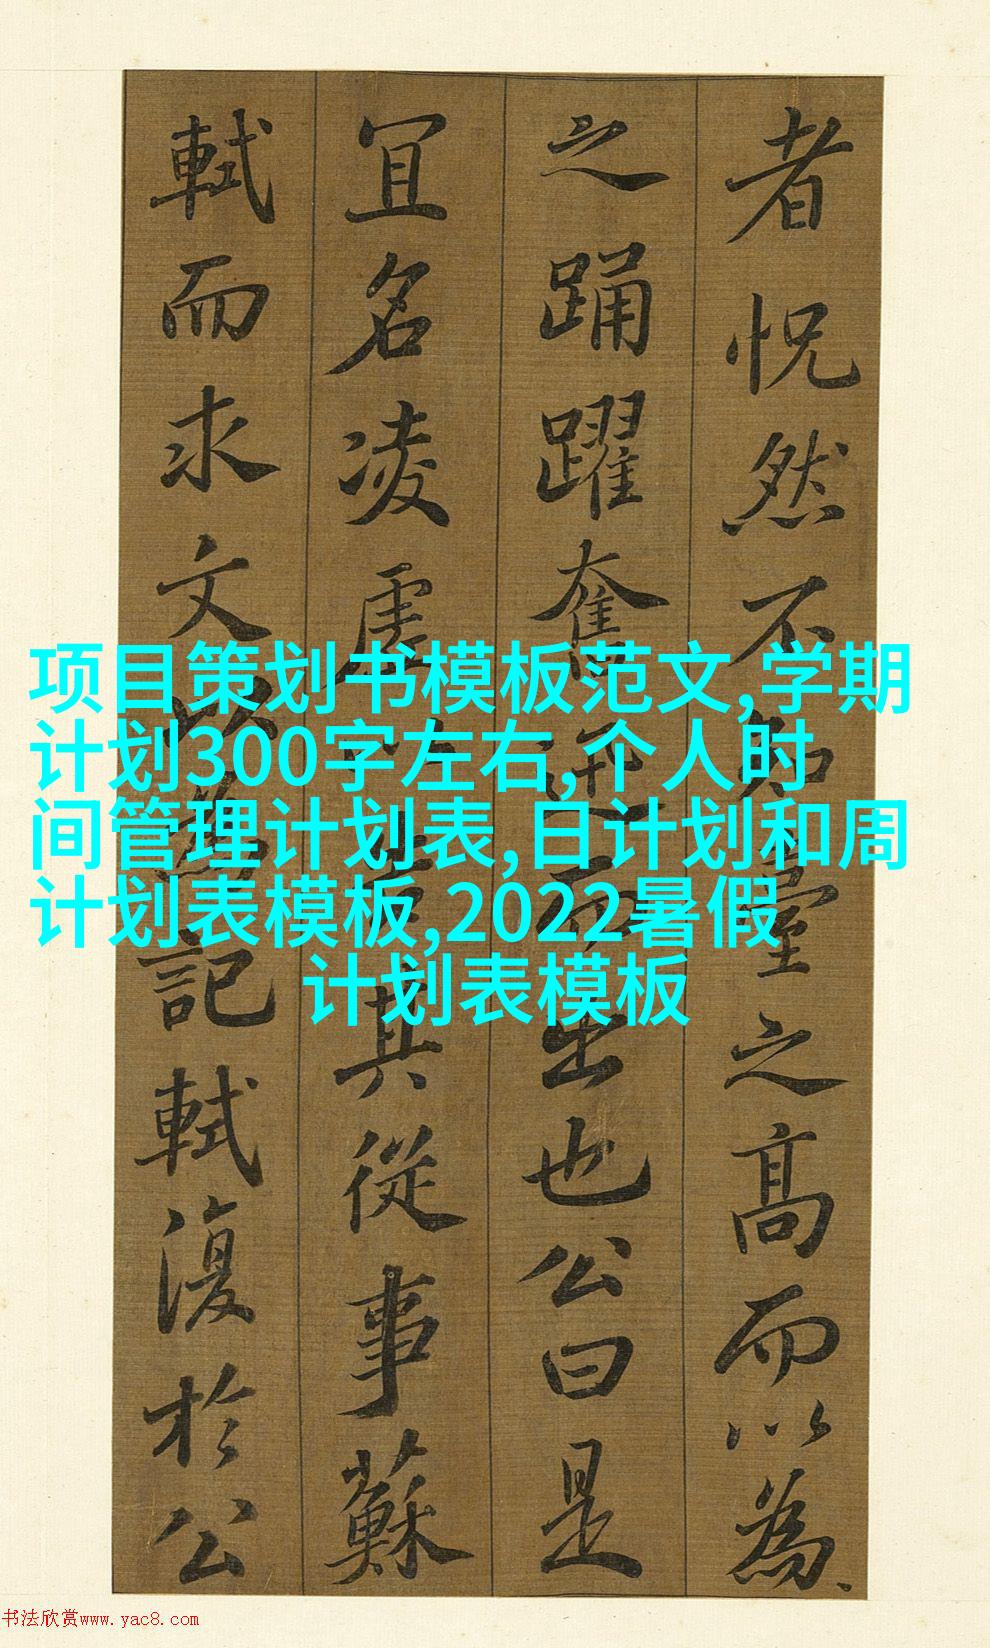 者怳然不知臺之高而以為
之踊躍奮迅而出也公曰是
冝名凌虛以告其從事蘇
軾而求文以為記軾復於公
项目策划书模板范文,学期
计划300字左右,个人时
间管理计划表,日计划和周
计划表模板,2022暑假
计划表模板
书法欣赏www.yac8.com